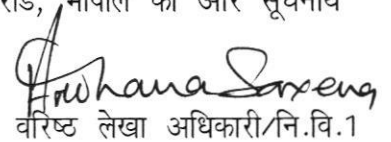 रोड, भोपाल की ओर सूचनार्थ
Archana Saxena
वरिष्ठ लेखा अधिकारी/नि.वि.1